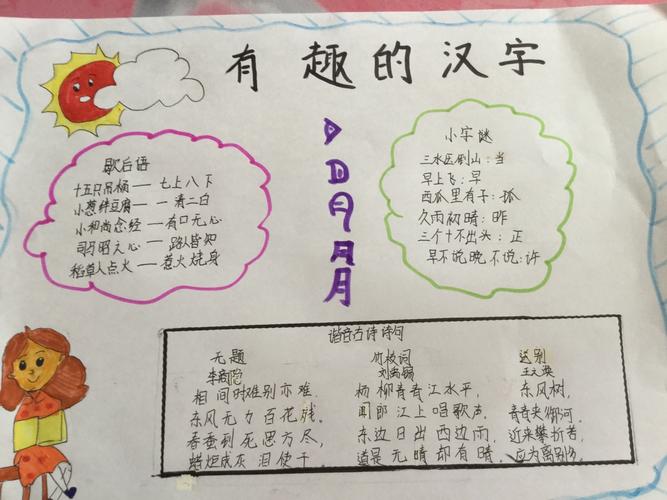 有趣的汉字
歇后语
十五只吊桶—七上八下
小葱拌豆腐—一清二白
小和尚念经—有口无心
司马昭之心—路人皆知
稻草人点火—惹火烧身
小字谜
三水压倒山:当
早上飞:早
西瓜里有子:孤
久雨初晴:昨
三个十不出头:正
早不说晚不说:许
谐音古诗诗句
无题
李商隐
相间时难别亦难.
东风无力百花残.
春蚕到死思方尽,
蜡炬成灰泪使干
竹枝词
刘禹锡
杨柳青青江水平,
闻郎江上唱歌声.
东边日出西边雨,
道是无晴却有晴.
送别
王之涣
东风树,
青青夹御河.
近来攀折苦,
应为离别多